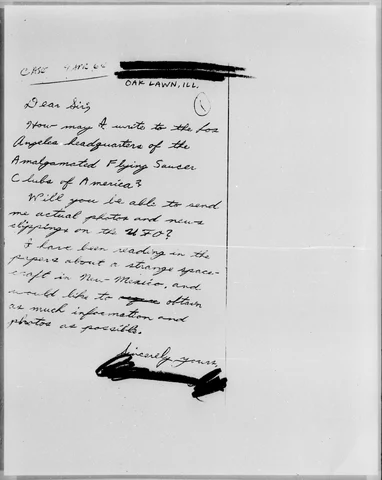 OAK LAWN, ILL.
Dear Sir,
How may I write to the Los
Angeles headquarters of the
Amalgamated Flying Saucer
Clubs of America?
Will you be able to send
me actual photos and news
clippings on the UFO?
I have been reading in the
papers about a strange space-
craft in New Mexico, and
would like to obtain
as much information and
photos as possible.
Sincerely yours,